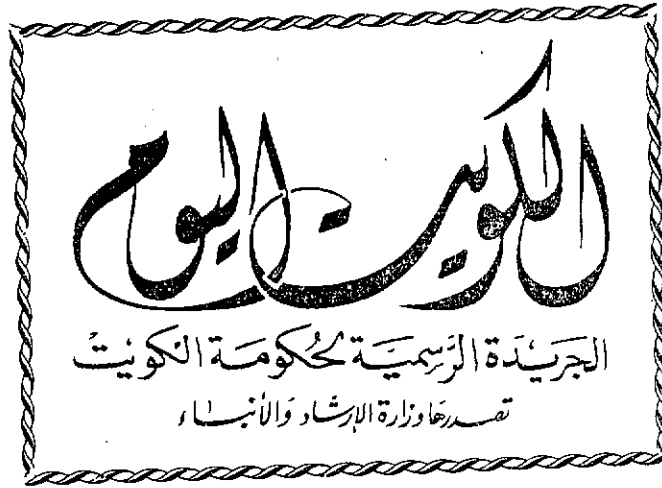 الكويت اليوم
الجَريْدَة الرَّسِميَّة لحُكومَة الكويْت
تصدرها وزارة الإرشاد وَالأنبـاء